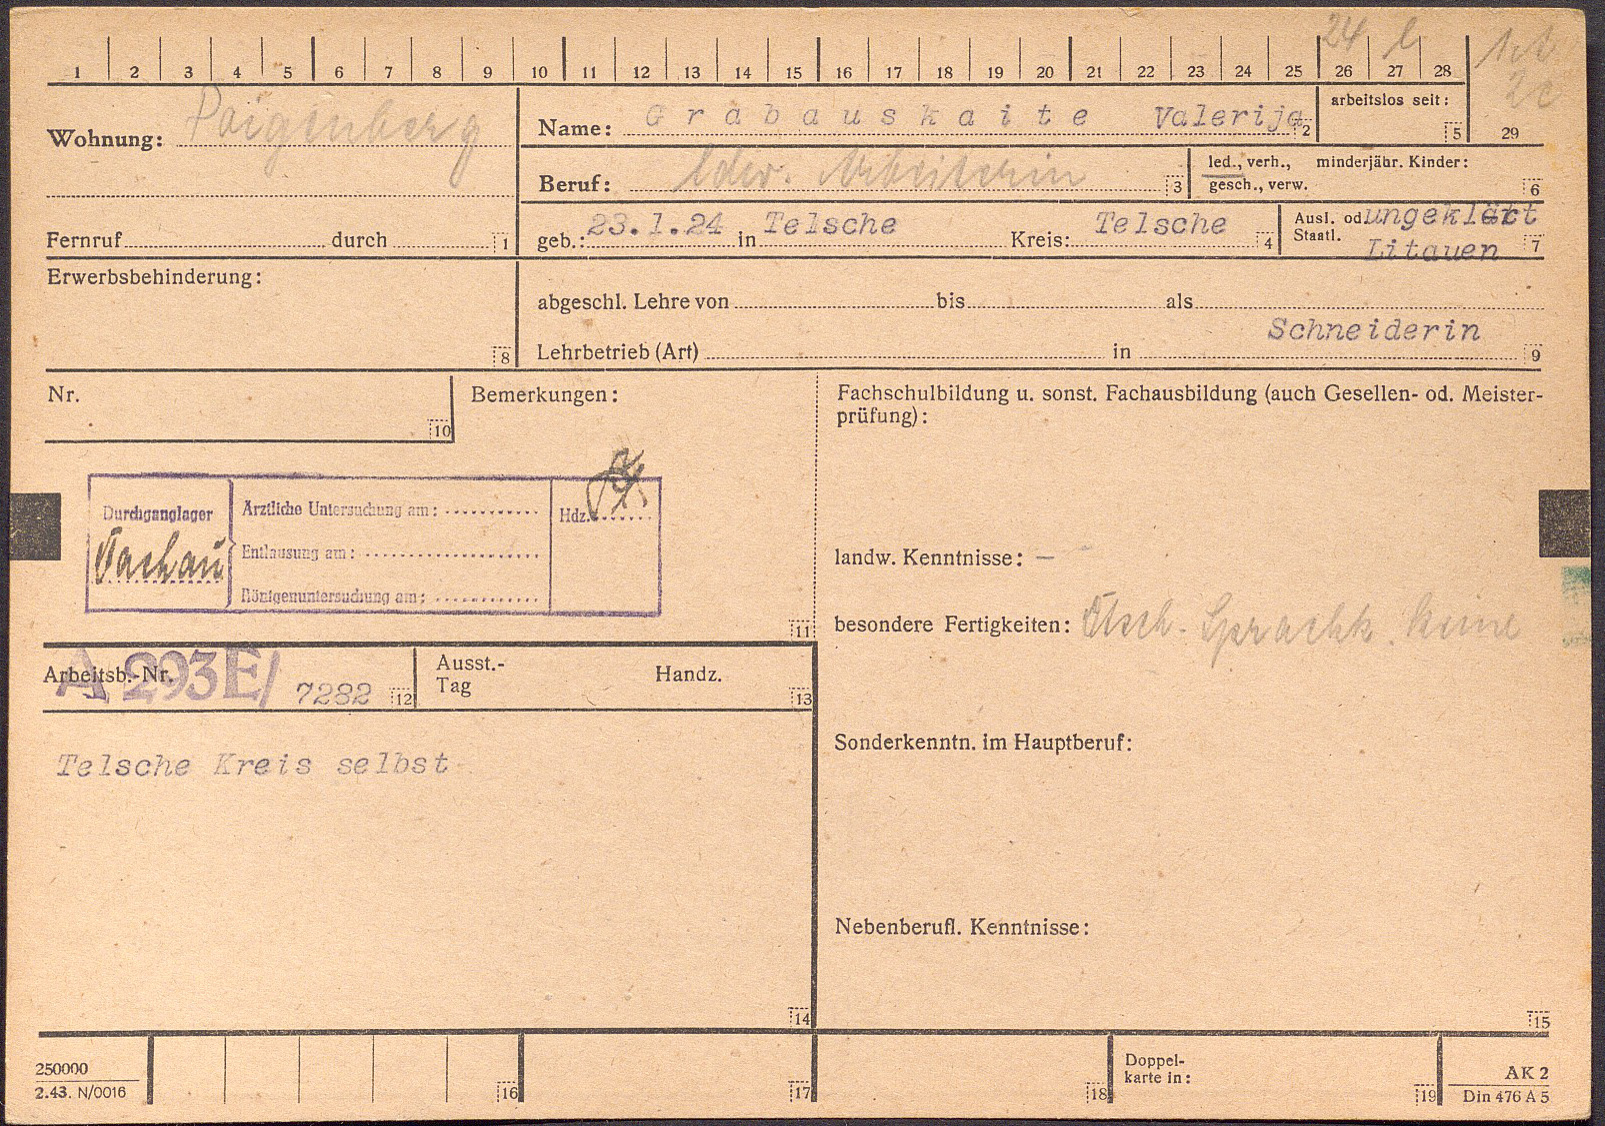 24 l
1 2 3 4 5 6 7 8 9 10 11 12 13 14 15 16 17 18 19 20 21 22 23 24 25 26 27 28
2c
29
Wohnung: Paigenberg
Name: Grabauskaite Valerija 2
arbeitslos seit: 5
Beruf: ldw. Arbeiterin 3
led., verh., minderjähr. Kinder:
gesch., verw. 6
Fernruf durch 1
geb.: 23.1.24 in Telsche Kreis: Telsche 4
Ausl. od. ungeklärt
Staatl. Litauen 7
Erwerbsbehinderung: 8
abgeschl. Lehre von bis als
Schneiderin
Lehrbetrieb (Art) in 9
Nr. 10
Bemerkungen:
Fachschulbildung u. sonst. Fachausbildung (auch Gesellen- od. Meister-
prüfung):
Durchganglager
Dachau
Ärztliche Untersuchung am:
Entlausung am:
Röntgenuntersuchung am:
Hdz.
11
landw. Kenntnisse: —
besondere Fertigkeiten: Dtsch. Sprachk. keine
Arbeitsb.-Nr. A 293E/ 7282 12
Ausst.-
Tag
Handz. 13
Telsche Kreis selbst
14
Sonderkenntn. im Hauptberuf:
Nebenberufl. Kenntnisse:
15
250000
2.43. N/0016
16 17 18
Doppel-
karte in: 19
AK 2
Din 476 A 5